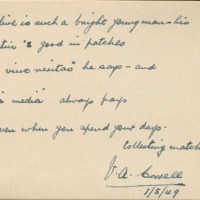 live is such a bright young man - his
is good in patches
vino veritas" he says - and
media" always pays
when you spend your days -
collecting match
V. A.
1/5/49